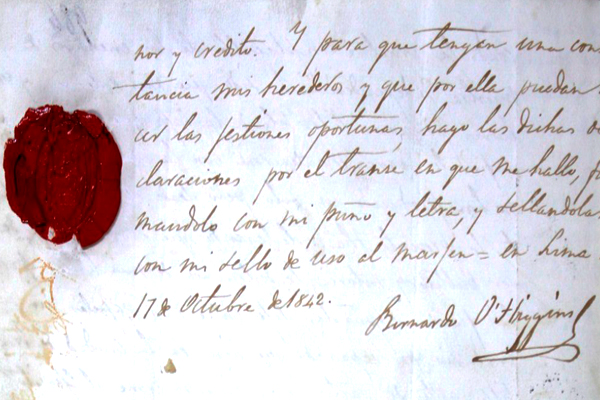 nor y credito. Y para que tengan una cons
tancia mis herederos y que por ella puedan
cer las gestiones oportunas, hago las dichas de
claraciones por el transe en que me hallo, fir
mandolo con mi puño y letra, y sellandolas
con mi sello de uso al margen = en Lima
17 de Octubre de 1842.
Bernardo O'Higgins